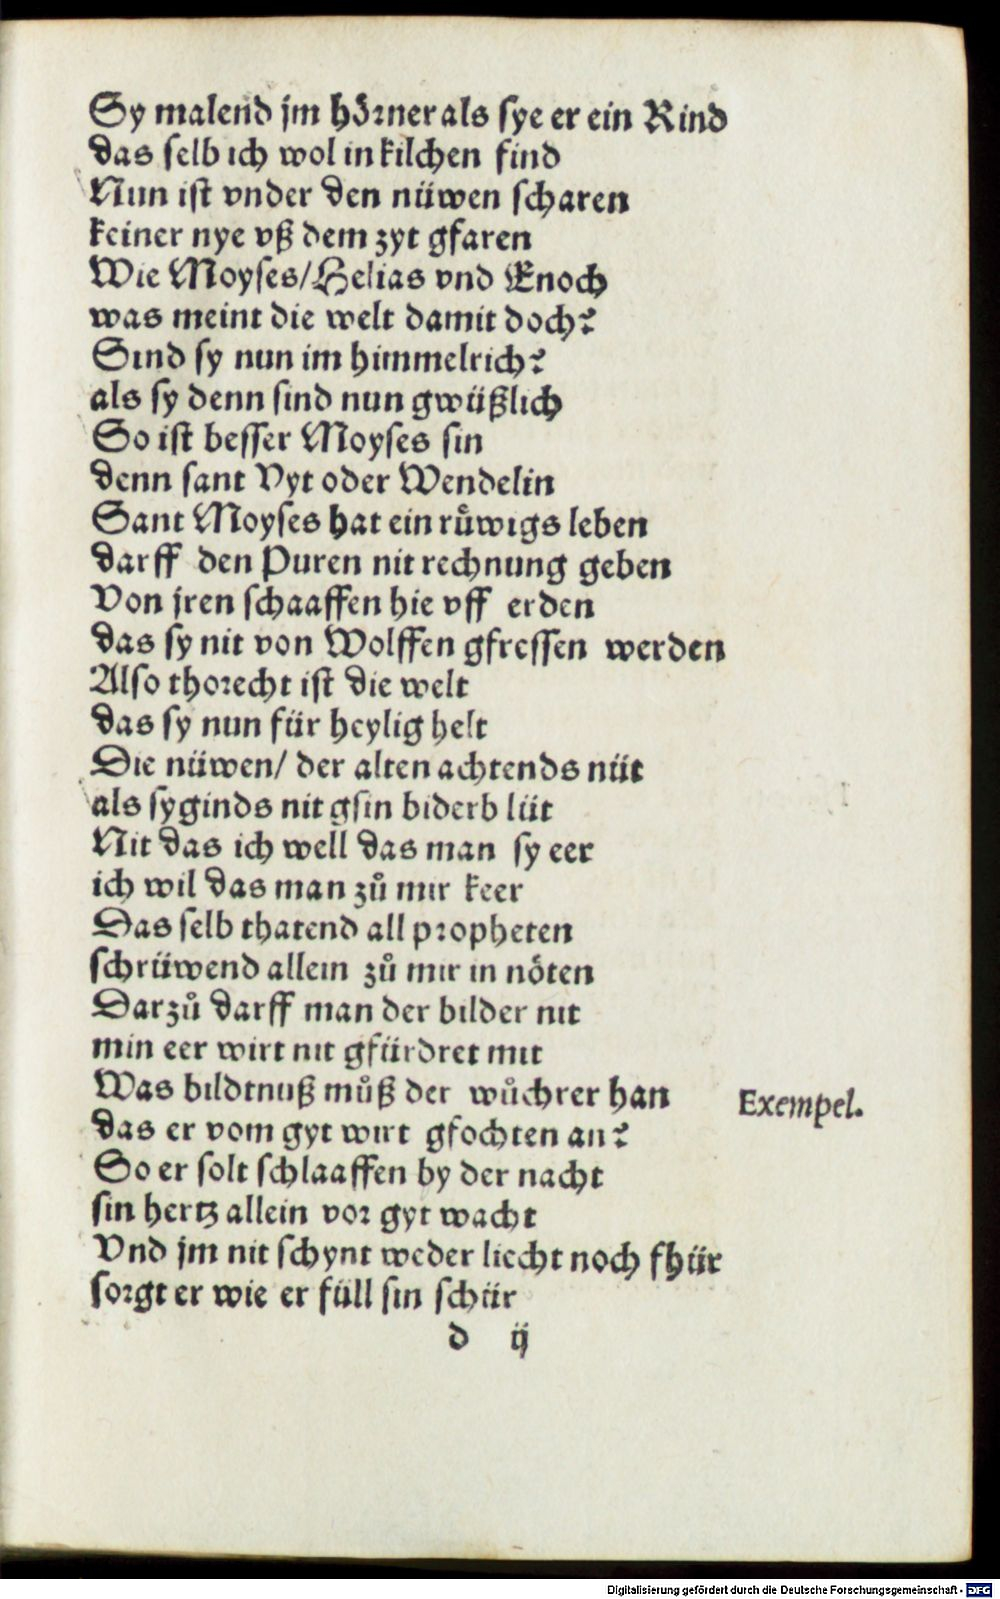 Sy malend jm hörner als sye er ein Rind
das selb ich wol in kilchen find
Nun ist vnder den nüwen scharen
keiner nye vß dem zyt gfaren
Wie Moyses/Helias vnd Enoch
was meint die welt damit doch?
Sind sy nun im himmelrich?
als sy denn sind nun gwüßlich
So ist besser Moyses sin
denn sant Vyt oder Wendelin
Sant Moyses hat ein růwigs leben
darff den Puren nit rechnung geben
Von jren schaaffen hie vff erden
das sy nit von Wolffen gfressen werden
Also thorecht ist die welt
das sy nun für heylig helt
Die nüwen/ der alten achtends nüt
als syginds nit gsin biderb lüt
Nit das ich well das man sy eer
ich wil das man zů mir keer
Das selb thatend all propheten
schrüwend allein zů mir in nöten
Darzů darff man der bilder nit
min eer wirt nit gfürdret mit
Was bildtnuß můß der wůchrer han
das er vom gyt wirt gfochten an?
So er solt schlaaffen by der nacht
sin hertz allein vor gyt wacht
Vnd jm nit schynt weder liecht noch fhür
sorgt er wie er füll sin schür
Exempel.
d ij
Digitalisierung gefördert durch die Deutsche Forschungsgemeinschaft - DFG